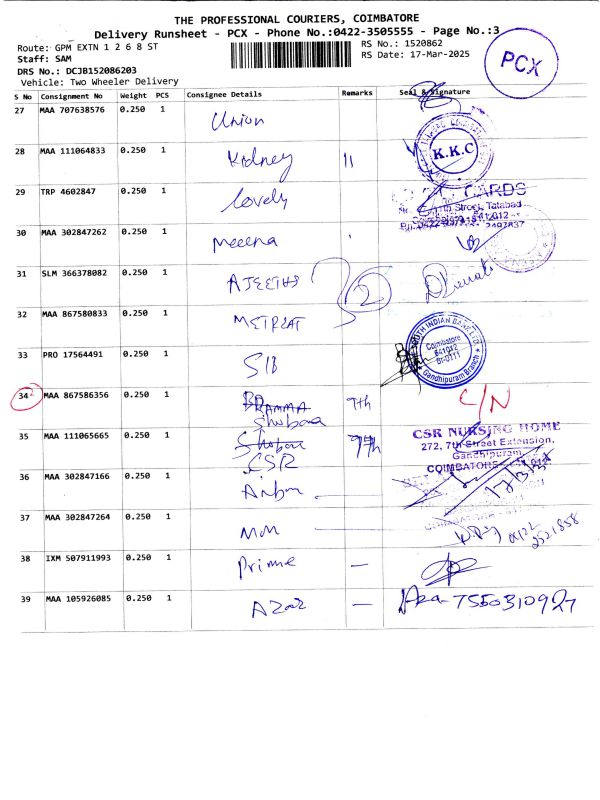 THE PROFESSIONAL COURIERS, COIMBATORE
Delivery Runsheet - PCX - Phone No.:0422-3505555 - Page No.:3
Route: GPM EXTN 1 2 6 8 ST
RS No.: 1520862
Staff: SAM
RS Date: 17-Mar-2025
DRS No.: DCJB152086203
Vehicle: Two Wheeler Delivery
PCX
S No Consignment No Weight PCS Consignee Details Remarks Seal & Signature
27 MAA 707638576 0.250 1 Union
28 MAA 111064833 0.250 1 Kidney 11 K.K.C
29 TRP 4602847 0.250 1 Lovely
CARDS
th Street, Tatabad
30 MAA 302847262 0.250 1 Meena
31 SLM 366378082 0.250 1 AJEETHS 2
32 MAA 867580833 0.250 1 METREAT
33 PRO 17564491 0.250 1 SIB
SOUTH INDIAN BANK LTD
Coimbatore
641012
Gandhipuram Branch
34 MAA 867586356 0.250 1 BRAMMA 9th C/N
Shobaa
35 MAA 111065665 0.250 1 Shobaa 9th
CSR
CSR NURSING HOME
272, 7th Street Extension,
Gandhipuram
COIMBATORE - 641 012
36 MAA 302847166 0.250 1
37 MAA 302847264 0.250 1 MM
0422
2521858
38 IXM 507911993 0.250 1 Prime —
39 MAA 105926085 0.250 1 Azaz — 7550310927